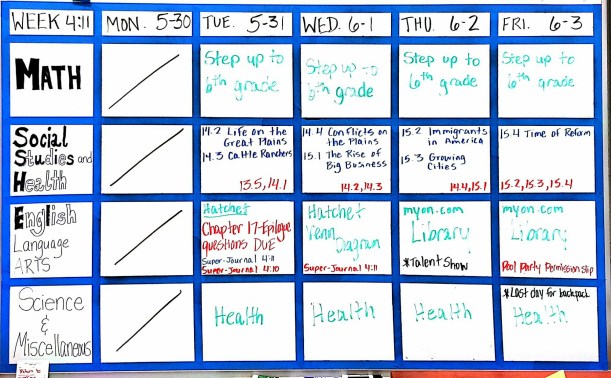 WEEK 4:11
MON. 5-30
TUE. 5-31
WED. 6-1
THU. 6-2
FRI. 6-3
MATH
Step up to
6th grade
Step up to
6th grade
Step up to
6th grade
Step up to
6th grade
Social
Studies and
Health
14.2 Life on the
Great Plains
14.3 Cattle Ranchers
13.5, 14.1
14.4 Conflicts on
the Plains
15.1 The Rise of
Big Business
14.2, 14.3
15.2 Immigrants
in America
15.3 Growing
Cities
14.4, 15.1
15.4 Time of Reform
15.2, 15.3, 15.4
English
Language
ARTS
Hatchet
Chapter 17-Epilogue
questions DUE
Super-Journal 4:11
Super-Journal 4:10
Hatchet
Venn
Diagram
Super-Journal 4:11
myon.com
Library
*Talent Show
myon.com
Library
Pool Party Permission Slip
Science
&
Miscellaneous
Health
Health
Health
*Last day for backpack
Health
Return to